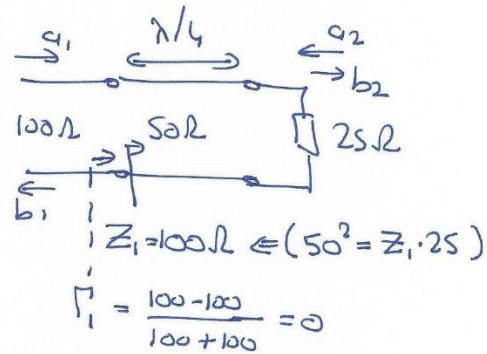 a₁ λ/4 a₂
b₂
100Ω 50Ω 25Ω
b₁
Z₁=100Ω ⇐(50²=Z₁·25)
Γ₁ = 100-100 / 100+100 = 0